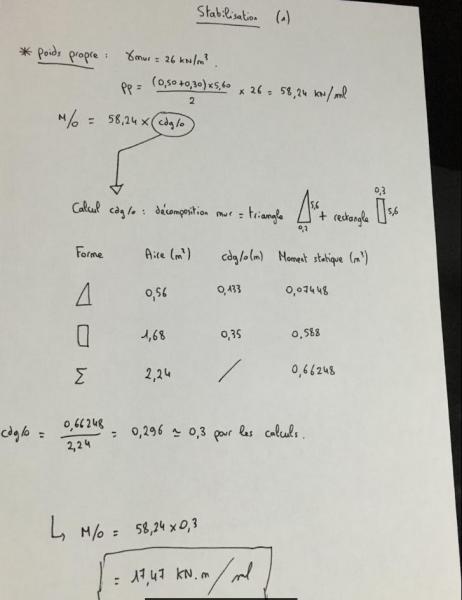 Stabilisation (1)
* Poids propre : γmur = 26 KN/m³.
PP = (0,50+0,30)×5,60 / 2 × 26 = 58,24 KN/ml
M/o = 58,24 × cdg/o
Calcul cdg/o : décomposition mur = triangle 5,6 0,2 + rectangle 0,3 5,6
Forme Aire (m²) cdg/o (m) Moment statique (m³)
0,56 0,133 0,07448
1,68 0,35 0,588
Σ 2,24 / 0,66248
cdg/o = 0,66248 / 2,24 = 0,296 ≃ 0,3 pour les calculs.
↳ M/o = 58,24 × 0,3
= 17,47 KN.m/ml